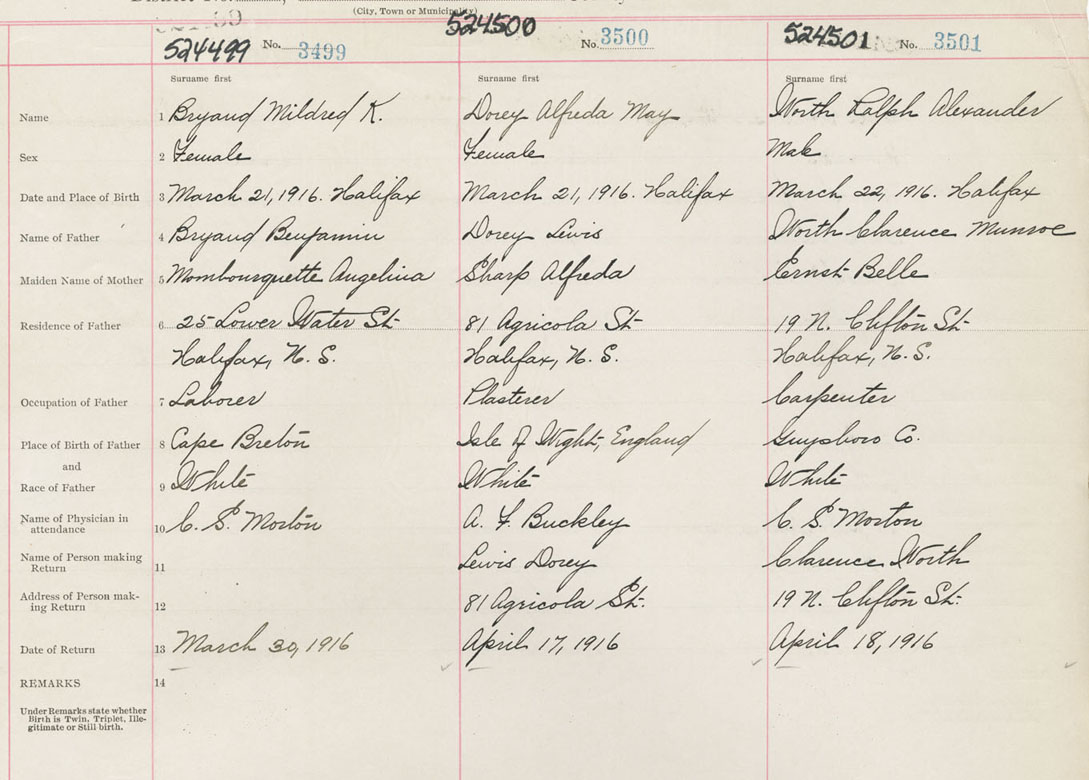 (City, Town or Municipality)
524499 No. 3499 524500 No. 3500 524501 No. 3501
Surname first Surname first Surname first
Name 1 Bryand Mildred K. Dorey Alfreda May North Ralph Alexander
Sex 2 Female Female Male
Date and Place of Birth 3 March 21, 1916. Halifax March 21, 1916. Halifax March 22, 1916. Halifax
Name of Father 4 Bryand Benjamin Dorey Lewis North Clarence Munroe
Maiden Name of Mother 5 Mombourquette Angelina Sharp Alfreda Ernst Belle
Residence of Father 6 25 Lower Water St. 81 Agricola St. 19 N. Clifton St.
Halifax, N. S. Halifax, N. S. Halifax, N. S.
Occupation of Father 7 Laborer Plasterer Carpenter
Place of Birth of Father 8 Cape Breton Isle of Wight, England Guysboro Co.
and
Race of Father 9 White White White
Name of Physician in attendance 10 C. S. Morton A. F. Buckley C. S. Morton
Name of Person making Return 11 Lewis Dorey Clarence North
Address of Person mak-ing Return 12 81 Agricola St. 19 N. Clifton St.
Date of Return 13 March 30, 1916 April 17, 1916 April 18, 1916
REMARKS 14
Under Remarks state whether
Birth is Twin, Triplet, Ille-
gitimate or Still birth.